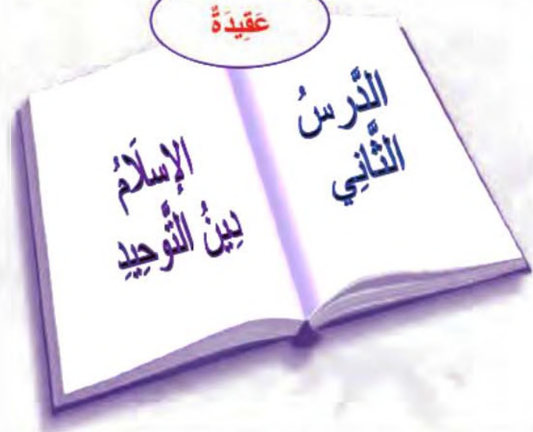 عَقِيدَةٌ
الدَّرسُ
الثَّانِي
الإِسلَامُ
دِينُ التَّوحِيدِ